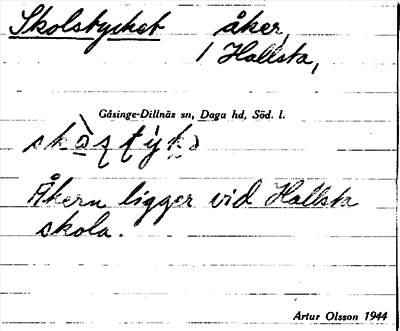 Skolstycket åker,
1 Hallsta,
Gåsinge-Dillnäs sn, Daga hd, Söd. l.
Åkern ligger vid Hallsta
skola.
Artur Olsson 1944